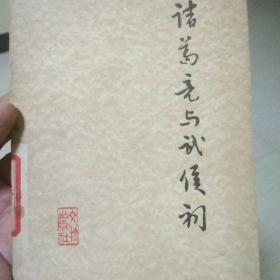 诸葛亮与武侯祠
文物
出版社